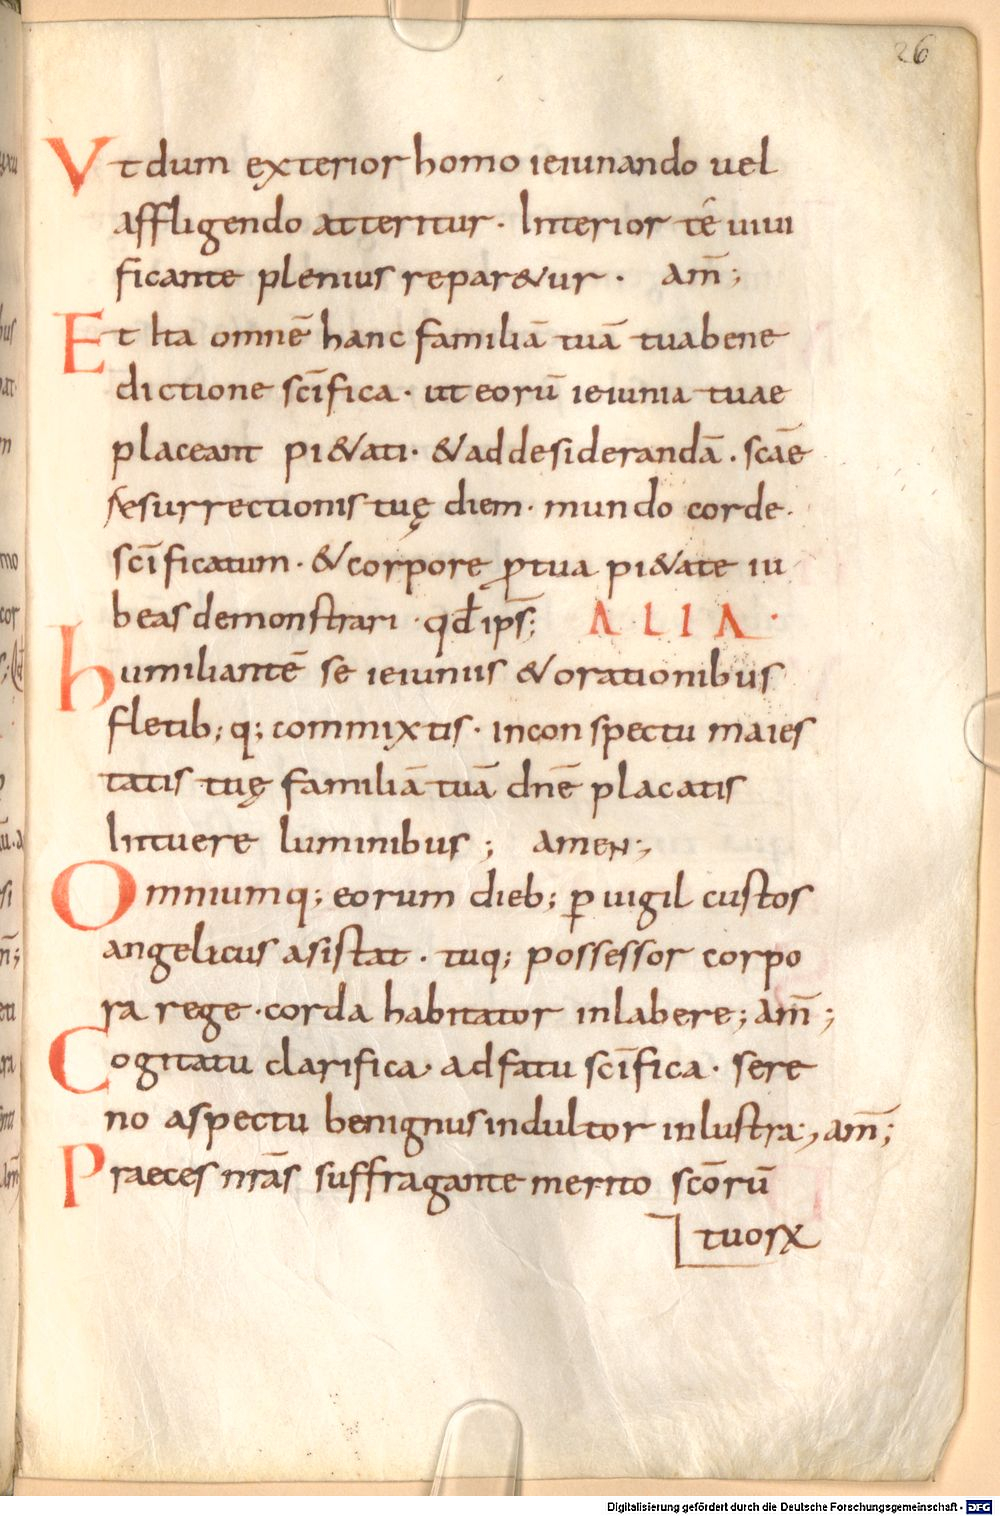 26
Vt dum exterior homo ieiunando uel
affligendo atteritur · Interior te uiui
ficante plenius repar&ur · am̅;
Et Ita omnē hanc familiā tuā tuabene
dictione sc̅ifica · ut eorū ieiunia tuae
placeant pi&ati · & ad desiderandā · sc̅ae
resurrectionis tuę diem · mundo corde ·
sc̅ificatum · & corpore ꝑ tua pi&ate iu
beas demonstrari · qđ ips̅; ALIA ·
humiliantē se ieiuniis & orationibus
fletib; q; commixtis · in conspectu maies
tatis tuę familiā tuā dn̅e placatis
Intuere luminibus; amen;
Omniumq; eorum dieb; ꝑuigil custos
angelicus asistat · tuq; possessor corpo
ra rege · corda habitator inlabere; am̅;
Cogitatu clarifica · adfatu sc̅ifica · sere
no aspectu benignus indultor inlustra; am̅;
Praeces nr̅as suffragante merito sc̅orū
tuorꝝ
Digitalisierung gefördert durch die Deutsche Forschungsgemeinschaft - DFG